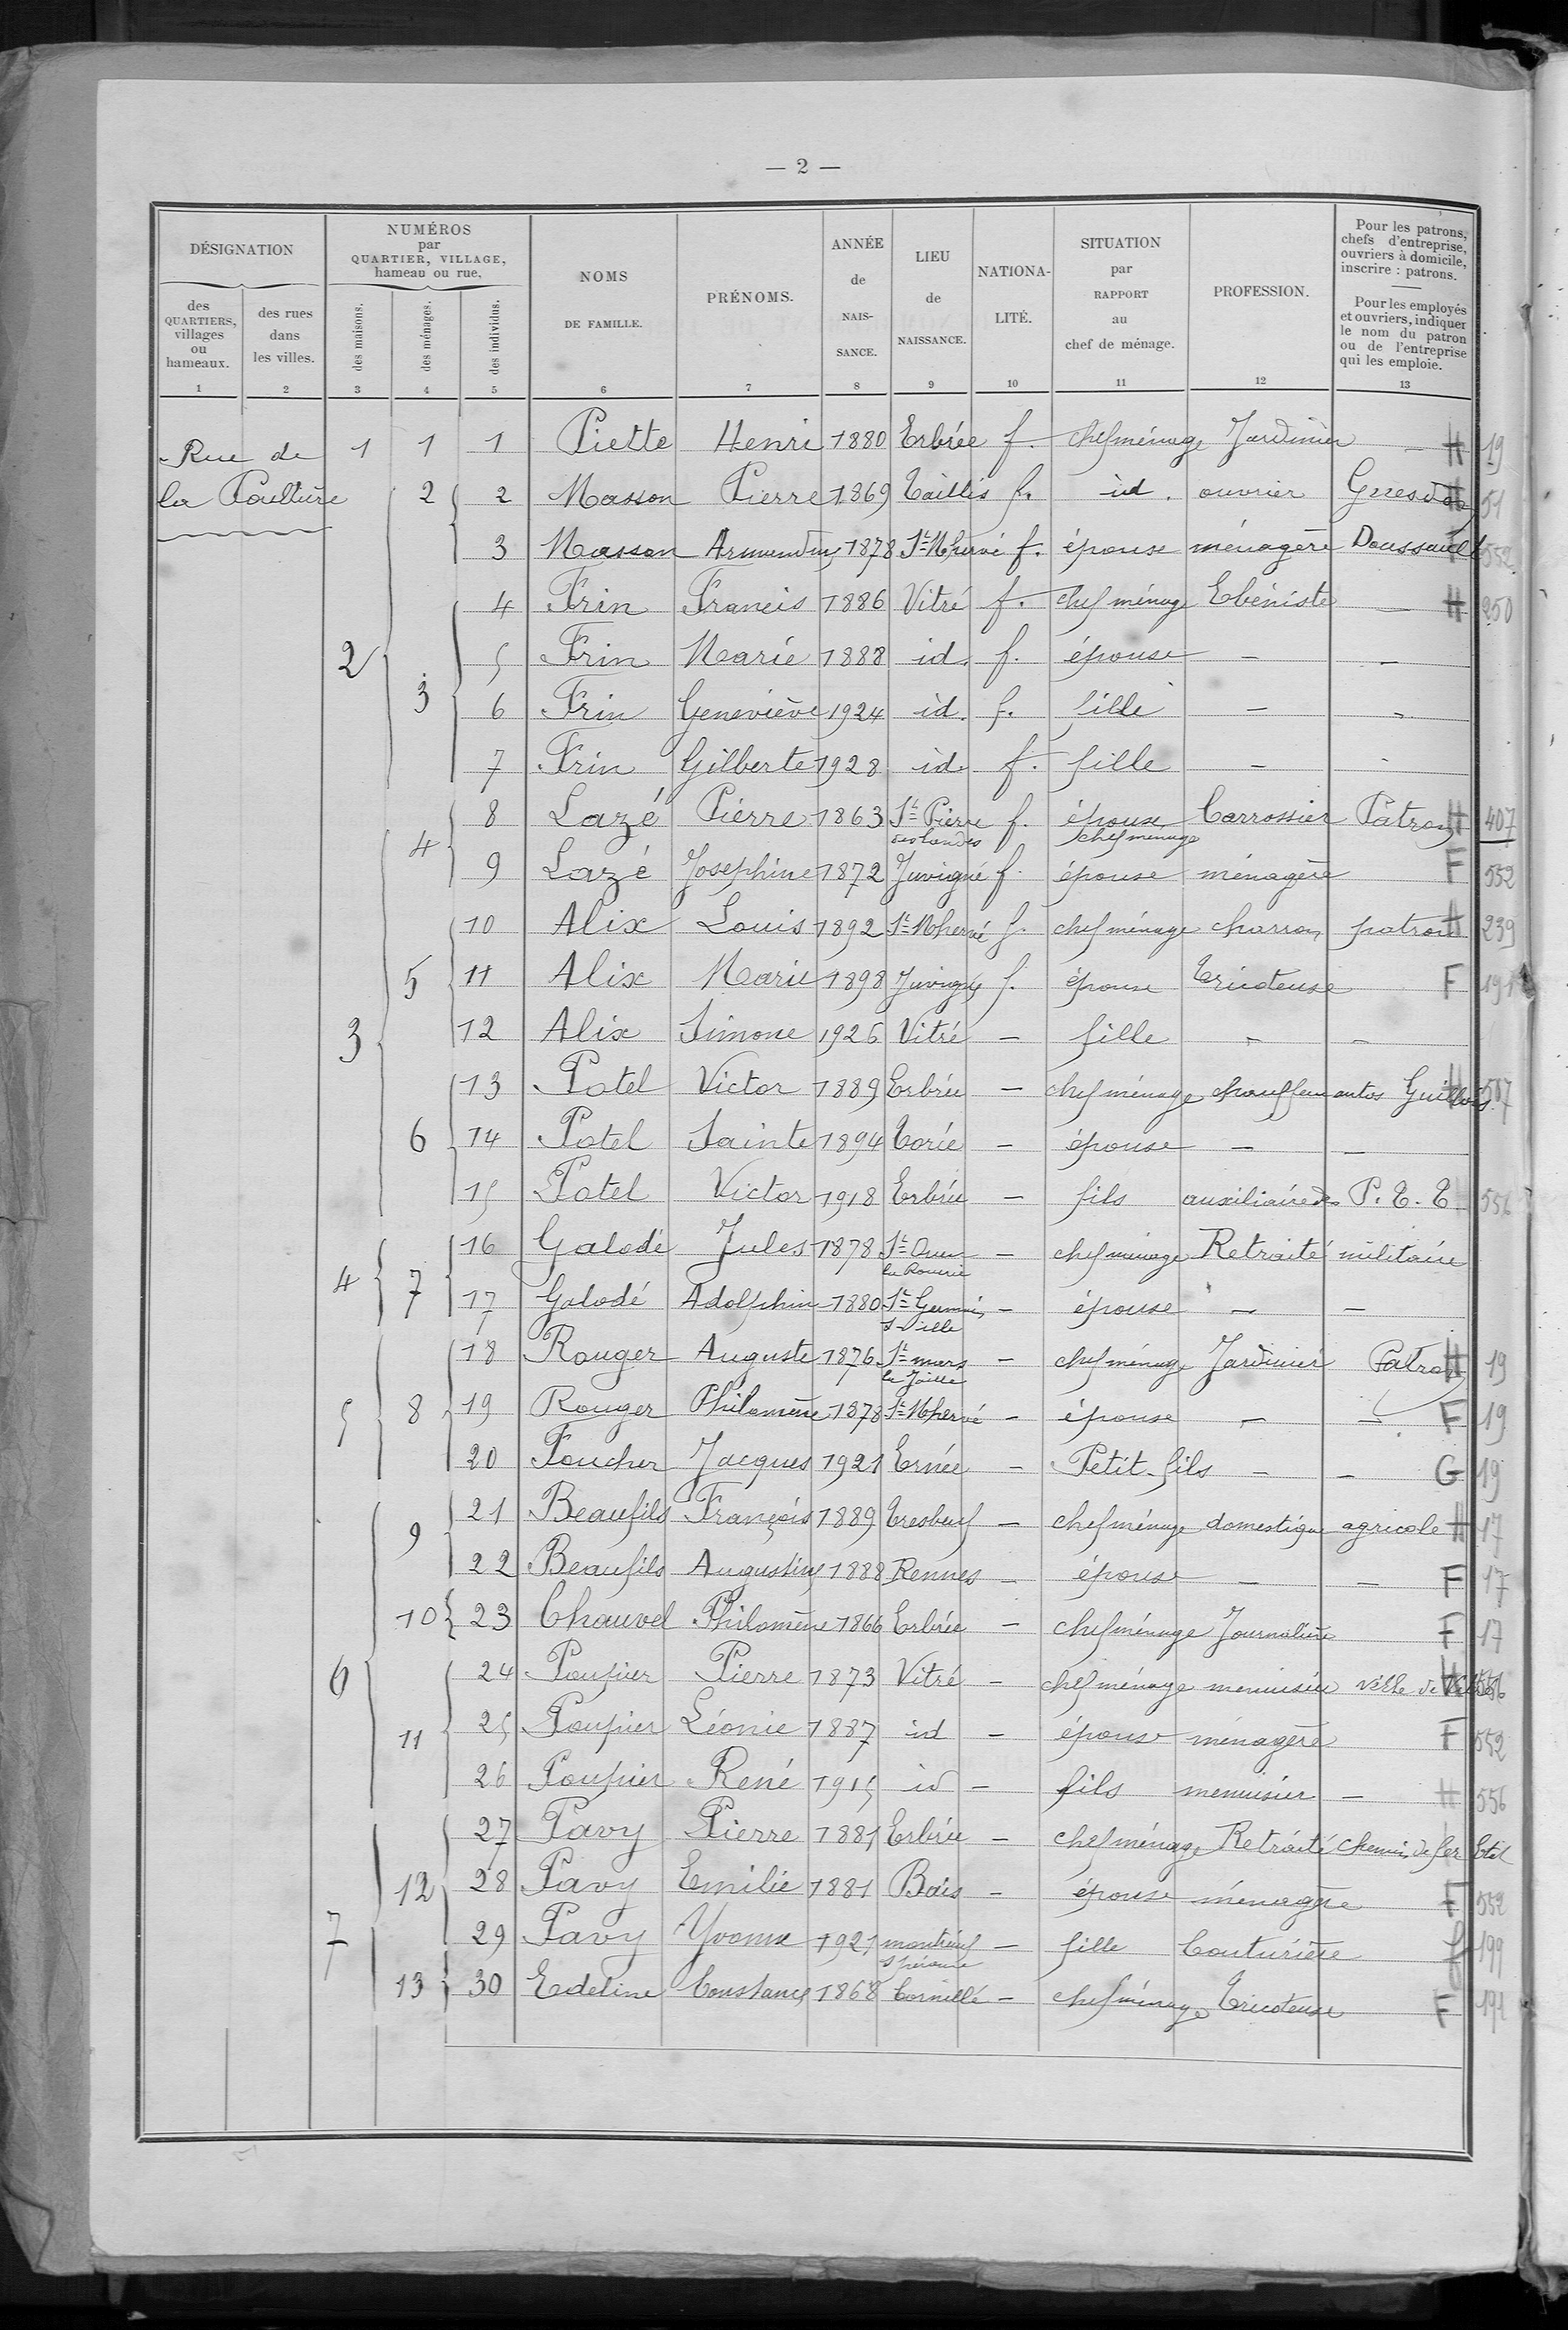 — 2 —
DÉSIGNATION
des QUARTIERS, villages ou hameaux.
des rues dans les villes.
NUMÉROS par QUARTIER, VILLAGE, hameau ou rue.
des maisons.
des ménages.
des individus.
NOMS DE FAMILLE.
PRÉNOMS.
ANNÉE de NAIS-SANCE.
LIEU de NAISSANCE.
NATIONA-LITÉ.
SITUATION par RAPPORT au chef de ménage.
PROFESSION.
Pour les patrons, chefs d'entreprise, ouvriers à domicile, inscrire : patrons.
Pour les employés et ouvriers, indiquer le nom du patron ou de l'entreprise qui les emploie.
1 2 3 4 5 6 7 8 9 10 11 12 13
Rue de 1 1 1 Piette Henri 1880 Erbrée f. chef ménage Jardinier — H 19
la Poultière 2 2 Masson Pierre 1869 Taillis f. id. ouvrier Guesdon 51
3 Masson Armandine 1878 St-Mhervé f. épouse ménagère Doussault 552
4 Frin Francis 1886 Vitré f. chef ménage Ebéniste — H 250
2 5 Frin Marie 1888 id. f. épouse — —
3 6 Frin Geneviève 1924 id. f. fille — -
7 Frin Gilberte 1928 id. f. fille — -
8 Lazé Pierre 1863 St-Pierre des landes f. épouse chef ménage Carrossier Patron H 407
4 9 Lazé Josephine 1872 Juvigné f. épouse ménagère F 552
10 Alix Louis 1892 St-Mhervé f. chef ménage charron patron H 239
5 11 Alix Marie 1898 Juvigné f. épouse Tricoteuse F 191
3 12 Alix Simone 1926 Vitré — fille - —
13 Potel Victor 1889 Erbrée — chef ménage chauffeur autos Guillois H
6 14 Potel Sainte 1894 Torcé — épouse — —
15 Potel Victor 1918 Erbrée — fils auxiliaire des P.T.T. 556
16 Galodé Jules 1878 St-Ouen la Rouerie — chef ménage Retraité militaire
4 7 17 Galodé Adolphine 1880 St-Germain s-Ville — épouse — —
18 Rouger Auguste 1876 St-mars la Jaille — chef ménage Jardinier Patron H 19
5 8 19 Rouger Philomène 1878 St-Mhervé — épouse — — F 19
20 Foucher Jacques 1921 Ernée — Petit-fils — — G 19
9 21 Beaufils François 1889 Tresbeuf — chef ménage domestique agricole H 17
22 Beaufils Augustine 1888 Rennes — épouse — — F 17
10 23 Chauvel Philomène 1866 Erbrée — chef ménage Journalière F 17
6 24 Poupier Pierre 1873 Vitré — chef ménage menuisier ville de Vitré H 556
11 25 Poupier Léonie 1887 id — épouse ménagère F 552
26 Poupier René 1915 id — fils menuisier — H 556
27 Pavy Pierre 1881 Erbrée — chef ménage Retraité chemin de fer Etat
12 28 Pavy Emilie 1881 Bais — épouse ménagère F 552
7 29 Pavy Yvonne 1921 montreuil s pérouse — fille Couturière f 199
13 30 Edeline Constance 1868 Cornillé — chef ménage Tricoteuse F 191